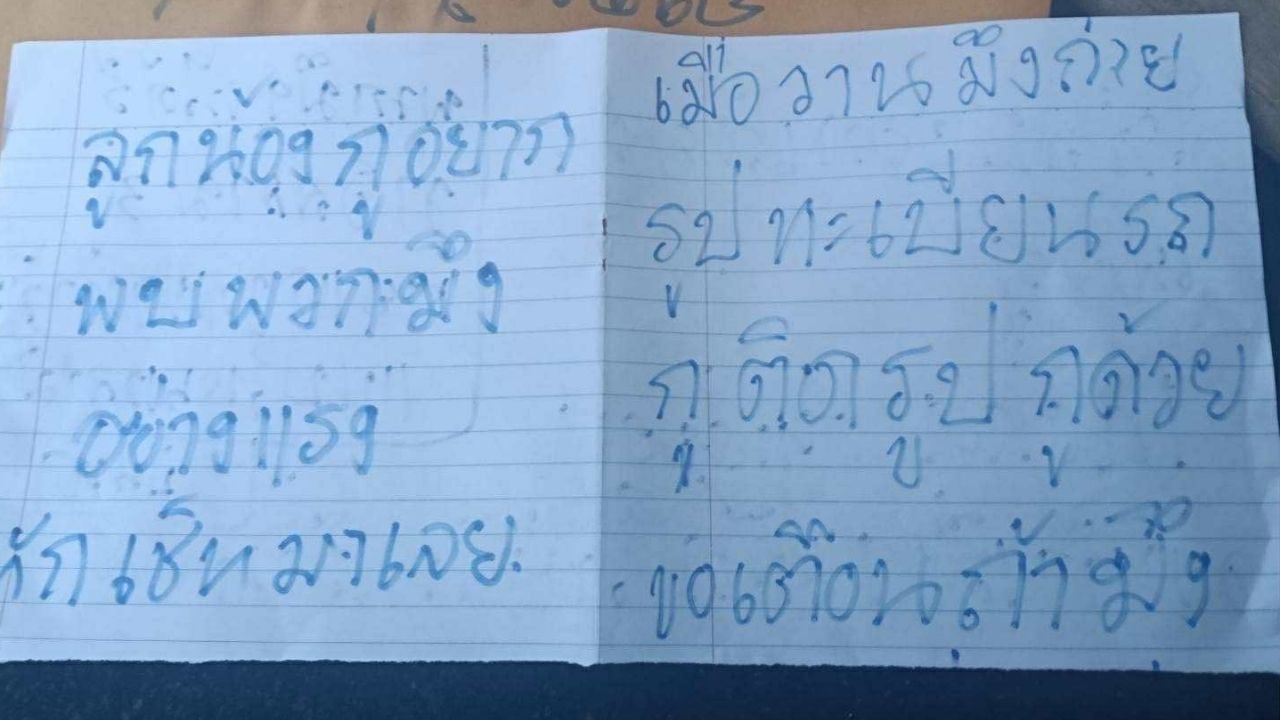 ลูกน้องกูอยาก
พบพวกมึง
อย่างแรง
ทักเช็ทมาเลย
เมื่อวานมึงถ่าย
รูปทะเบียนรถ
กูติดรูปกูด้วย
ขอเตือนถ้ามึง